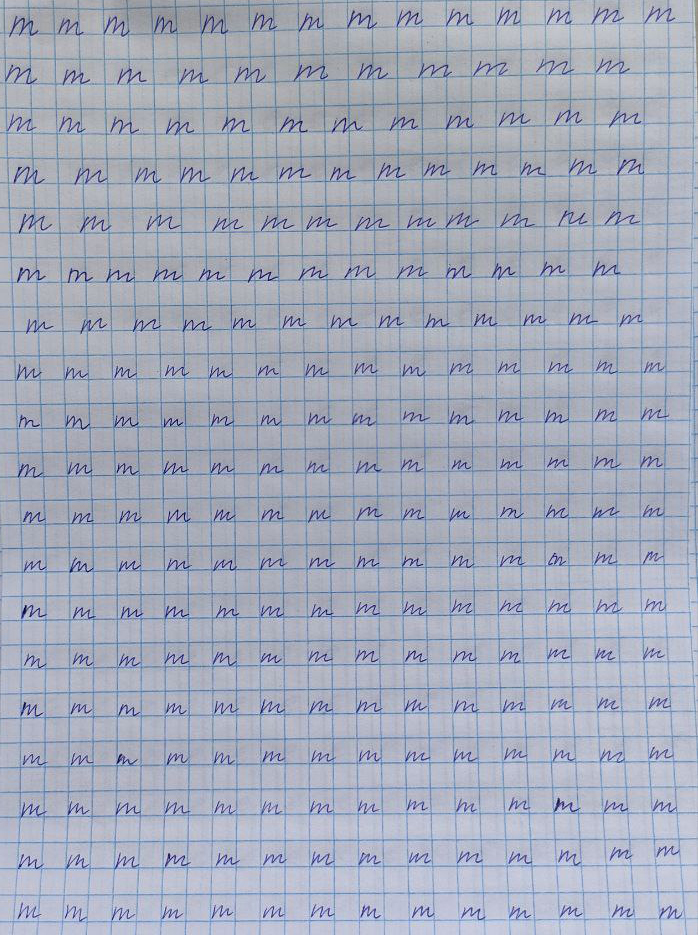 m m m m m m m m m m m m m m
m m m m m m m m m m m
m m m m m m m m m m m m
m m m m m m m m m m m m m
m m m m m m m m m m m m
m m m m m m m m m m m m m
m m m m m m m m m m m m m
m m m m m m m m m m m m m m
m m m m m m m m m m m m m m
m m m m m m m m m m m m m m
m m m m m m m m m m m m m m
m m m m m m m m m m m m m m
m m m m m m m m m m m m m m
m m m m m m m m m m m m m m
m m m m m m m m m m m m m m
m m m m m m m m m m m m m m
m m m m m m m m m m m m m m
m m m m m m m m m m m m m m
m m m m m m m m m m m m m m